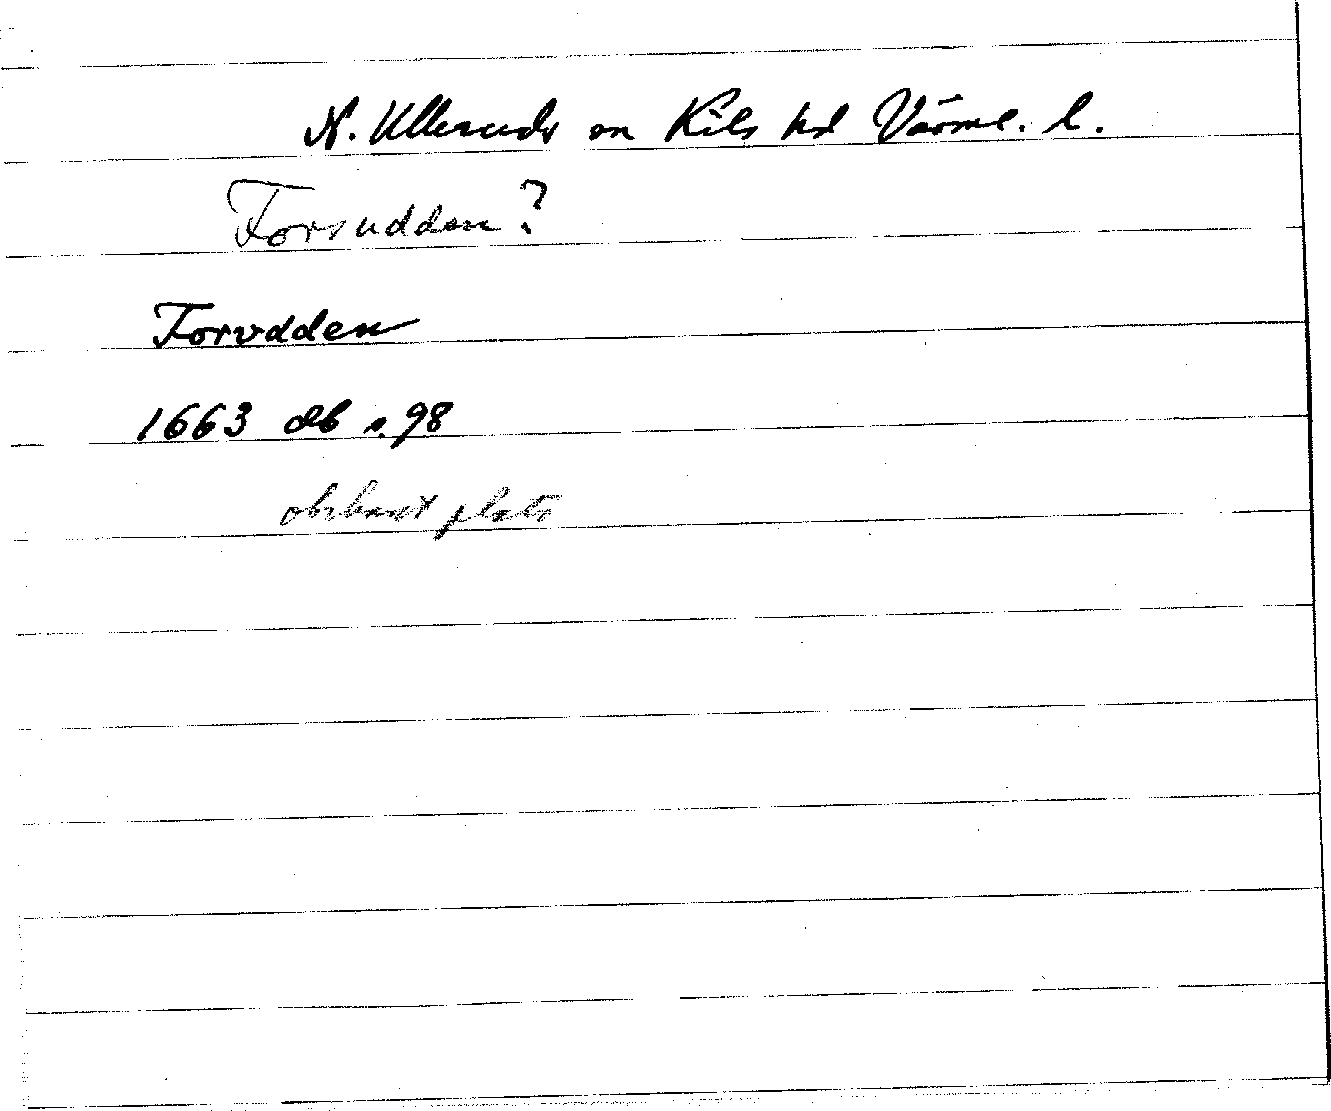 N. Ulleruds sn Kils hd Värml. l.
Forsudden?
Forvdden
1663 db s. 98
obekant plats